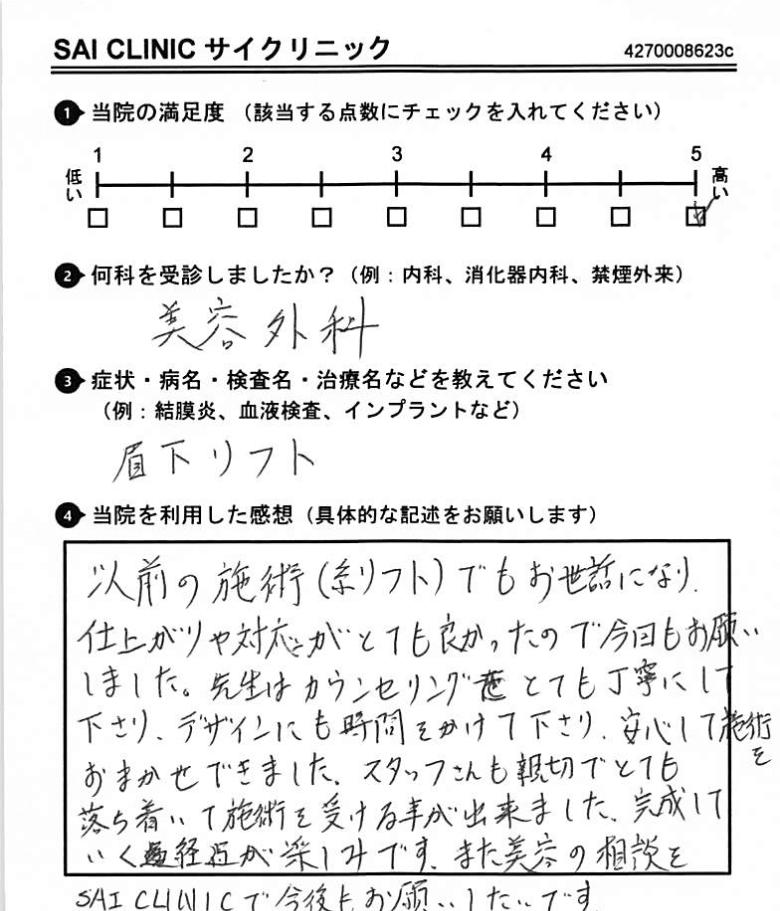 SAI CLINIC サイクリニック 4270008623c
1 当院の満足度 （該当する点数にチェックを入れてください）
1 2 3 4 5
低い 高い
2 何科を受診しましたか？（例：内科、消化器内科、禁煙外来）
美容外科
3 症状・病名・検査名・治療名などを教えてください
（例：結膜炎、血液検査、インプラントなど）
眉下リフト
4 当院を利用した感想（具体的な記述をお願いします）
以前の施術(糸リフト)でもお世話になり、
仕上がりや対応がとても良かったので今回もお願い
しました。先生はカウンセリングをとても丁寧にして
下さり、デザインにも時間をかけて下さり、安心して施術を
おまかせできました、スタッフさんも親切でとても
落ち着いて施術を受ける事が出来ました、完成して
いく経過が楽しみです、また美容の相談を
SAI CLINICで今後もお願いしたいです